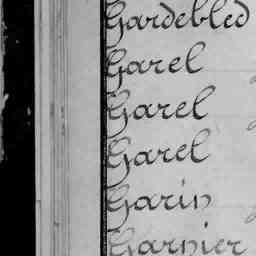 Gardebled
Garel
Garel
Garel
Garin
Garnier